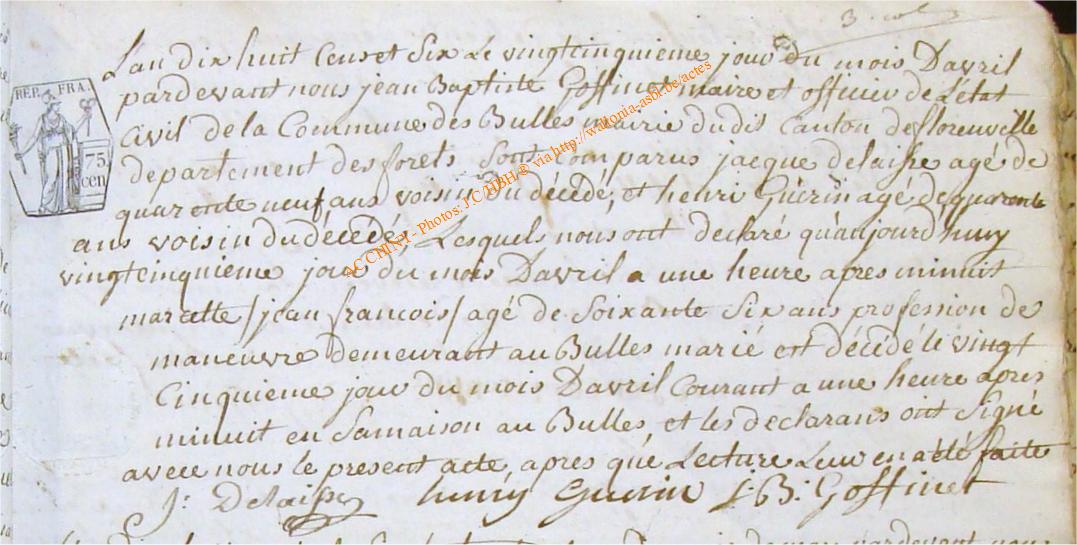 L'an dix huit cens et Six Le vingtcinquieme jour du mois Davril
pardevant nous jean Baptiste Goffinet maire et officier de L'état
REP. FRA.
Civil de la Commune des Bulles mairie dudit Canton de florenville
75
cen
departement des forets Sont Comparus jacque delaisse agé de
quarente neuf ans voisin du décédé, et henri Guérin agé de quarente
ans voisin du décédé, Lesquels nous ont declaré qu'aujourdhuy
vingtcinquieme jour du mois Davril a une heure apres minuit
marcette / jean francois / agé de Soixante Six ans profession de
maneuvre demeurant au Bulles marié est décédé le vingt
Cinquieme jour du mois Davril Courant a une heure apres
minuit en Samaison au Bulles, et les declarans ont Signé
avece nous le present acte, apres qué Lecture Leur en a été faitte
J: Delaisse henry Guerin J B: Goffinet
AC CHINY - Photos: J.C. HBH@ via http://watkonia-asbl.be/actes